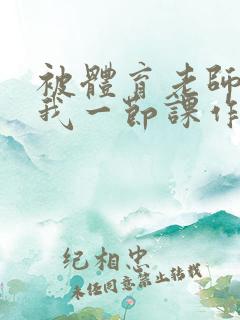 被體育老師
我一節課作
紀相忠
未任同意禁止转载